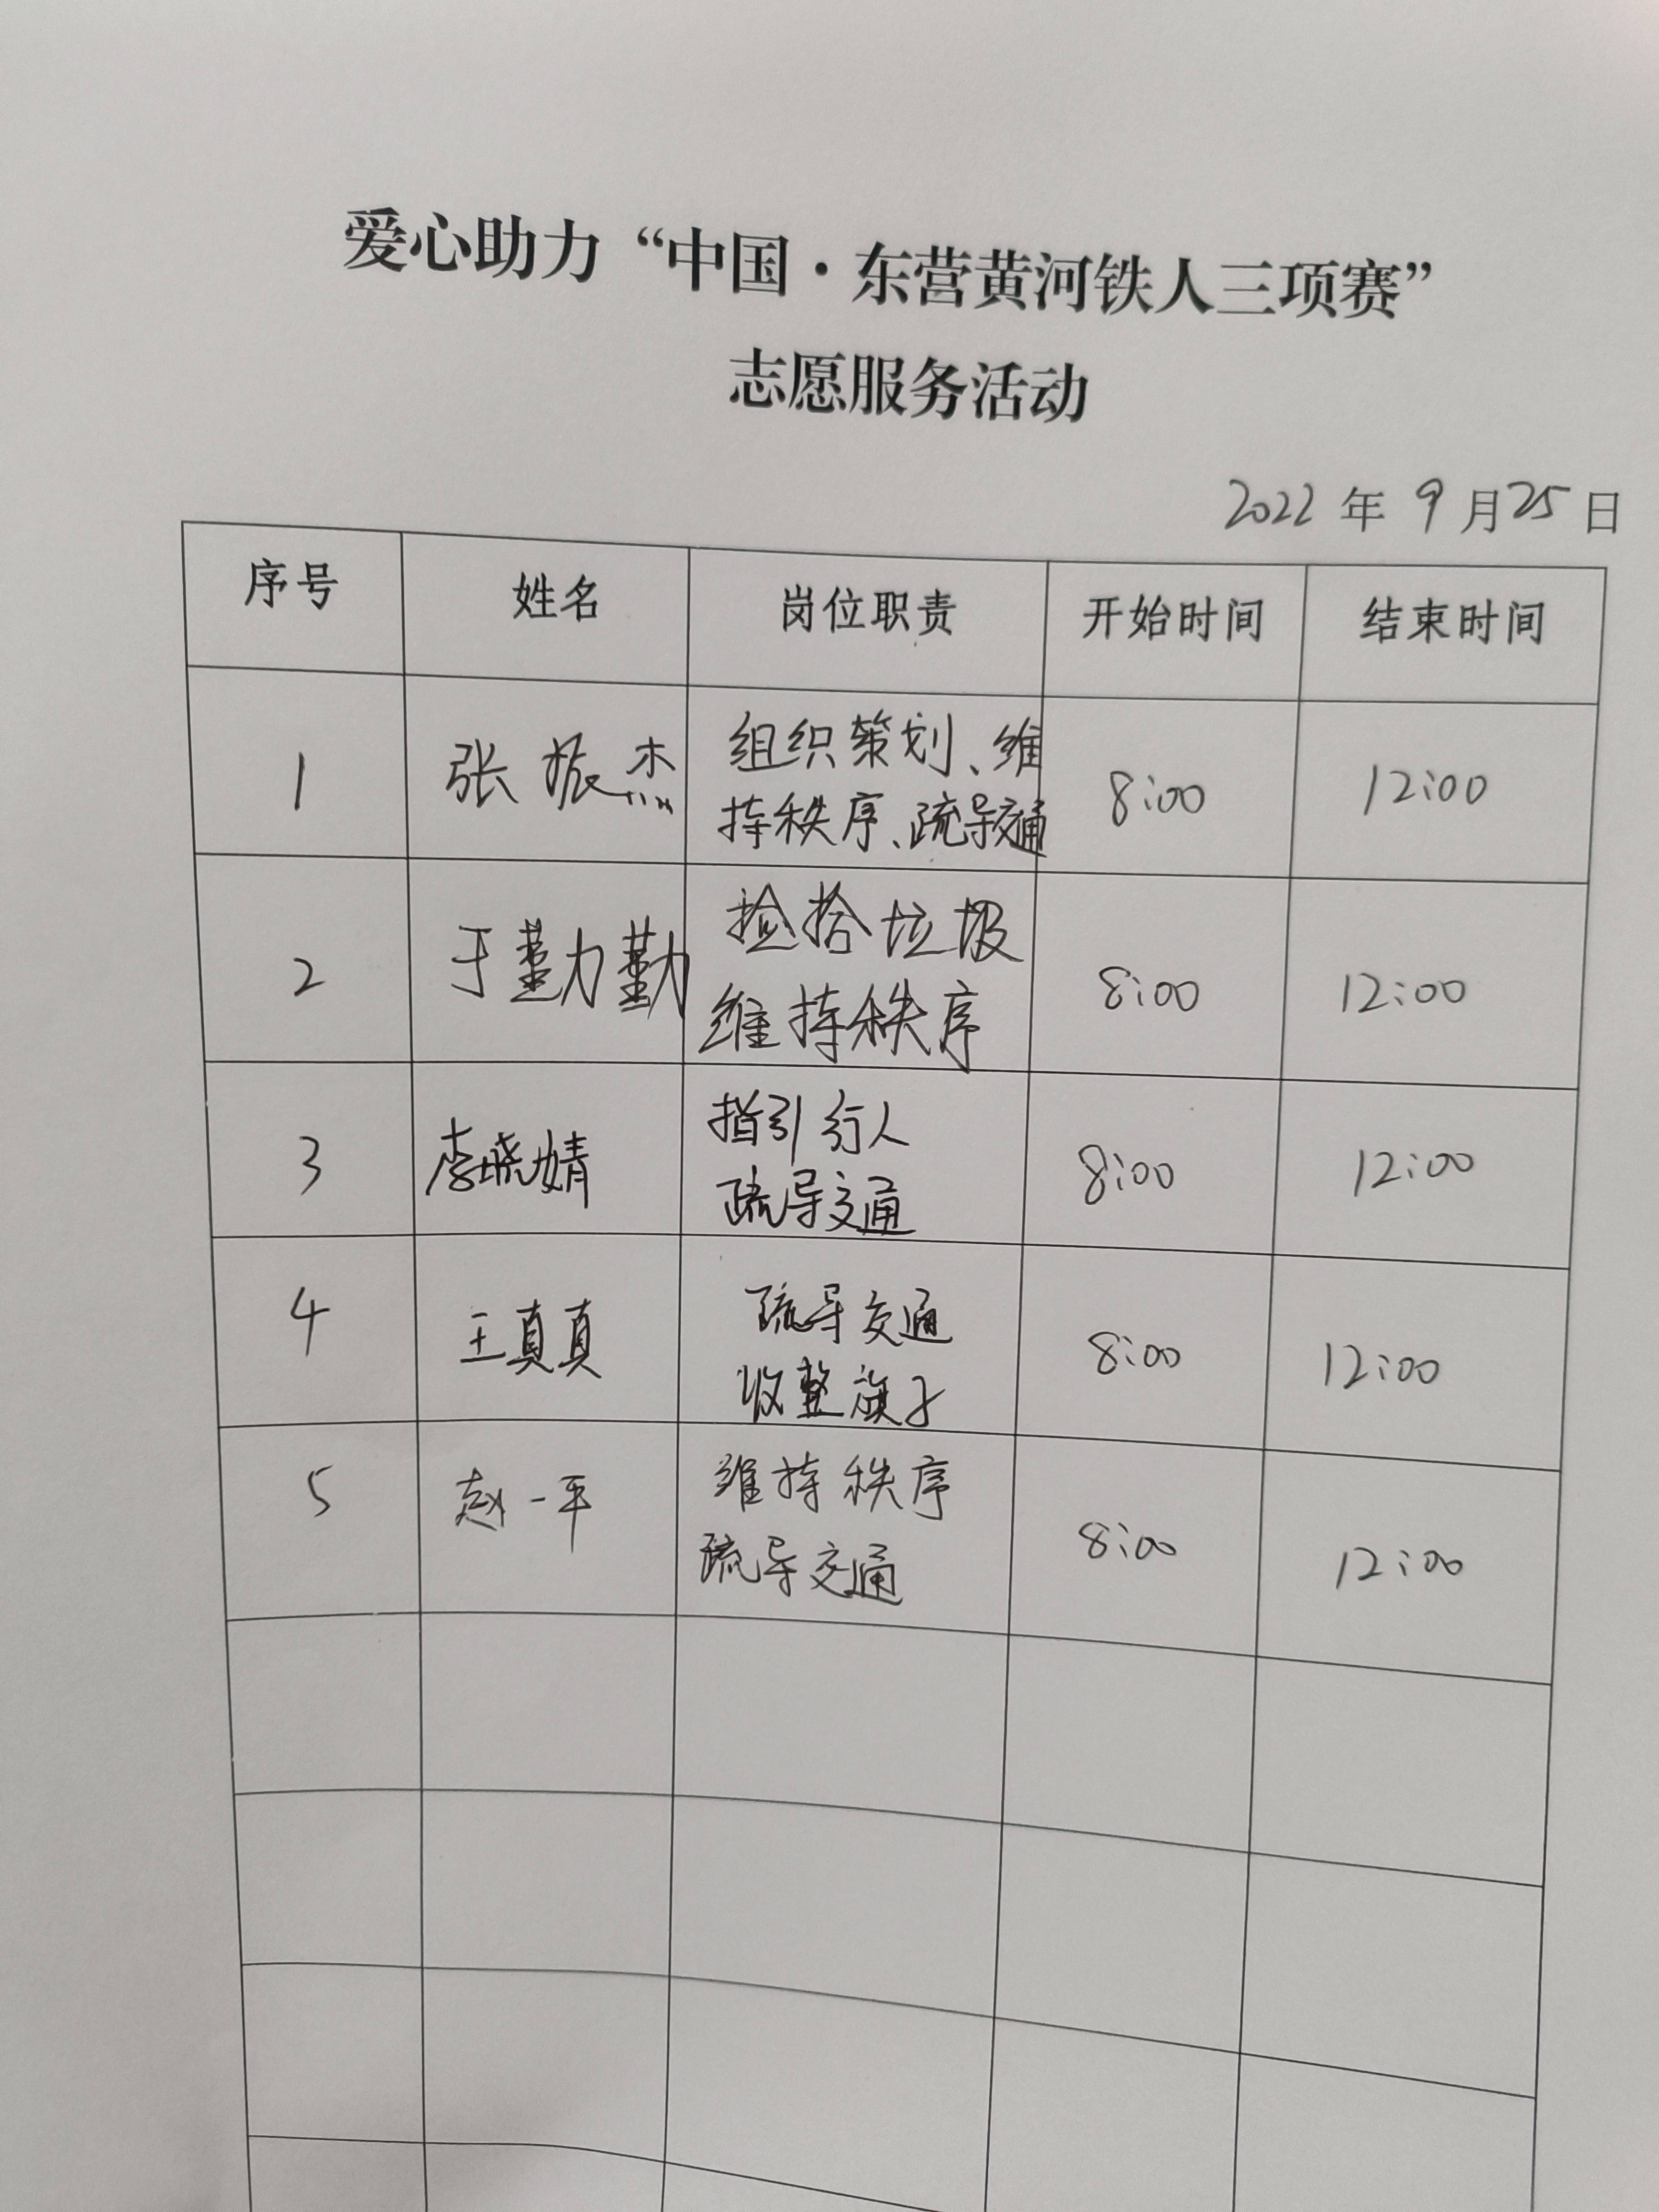 爱心助力“中国·东营黄河铁人三项赛”
志愿服务活动
2022 年 9 月 25 日
序号 姓名 岗位职责 开始时间 结束时间
1 张振杰 组织策划、维 8:00 12:00
持秩序、疏导交通
2 于勤勤 捡拾垃圾 8:00 12:00
维持秩序
3 李晓婧 指引行人 8:00 12:00
疏导交通
4 王真真 疏导交通 8:00 12:00
收整旗子
5 赵一平 维持秩序 8:00 12:00
疏导交通